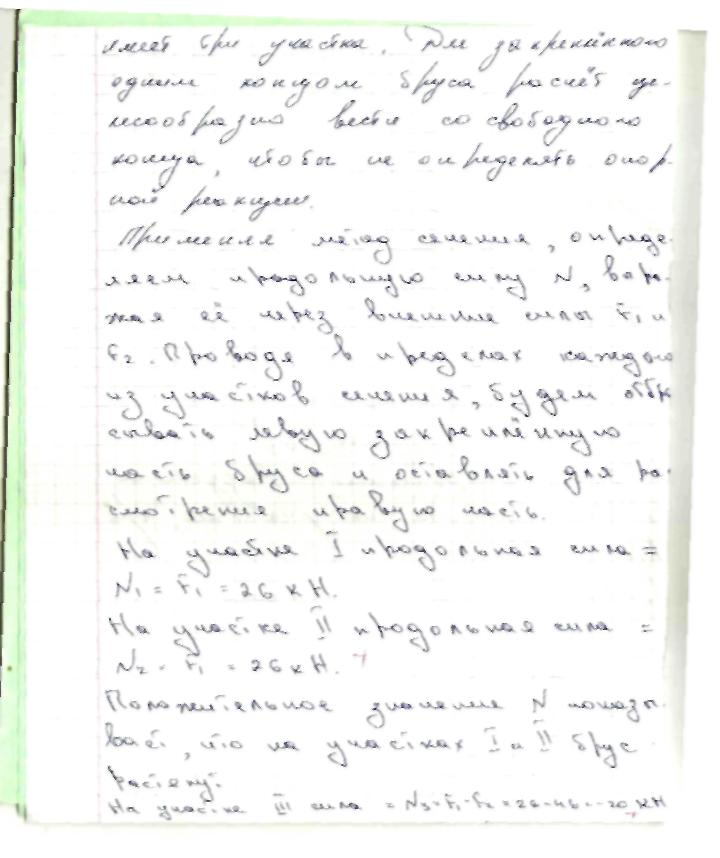 имеет три участка. Для закреплённого
одним концом бруса расчёт це-
лесообразно вести со свободного
конца, чтобы не определять опор-
ной реакции.
Применяя метод сечения, опреде-
ляем продольную силу N, выра-
жая её через внешние силы F₁ и
F₂. Проводя в пределах каждого
из участков сечения, будем отбра
сывать левую закреплённую
часть бруса и оставлять для ра-
смотрения правую часть.
На участке I продольная сила =
N₁ = F₁ = 26 кН.
На участке II продольная сила =
N₂ = F₁ = 26 кН.
Положительное значение N показы-
вает, что на участках I и II брус
растянут.
На участке III сила = N₃ = F₁ - F₂ = 26 - 46 = -20 кН